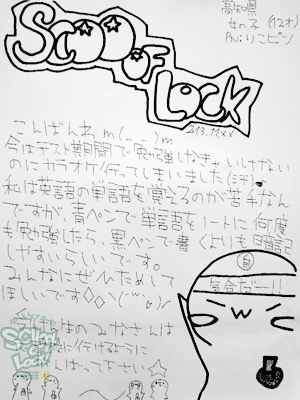 SCHOOL OF LOCK
高知県
女の子(12才)
PN:りこピン
2013.11.xx
こんばんわ m(_ _)m
今はテスト期間で勉強しなきゃいけない
のにカラオケ行ってしまいました(汗)
私は英語の単語を覚えるのが苦手なん
ですが、青ペンで単語をノートに何度
も勉強したら、黒ペンで書くよりも暗記
しやすいらしいです。
みんなにぜひためして
ほしいです
気合だー!!
生のみなさんは
に行けるように
んばって下さい☆